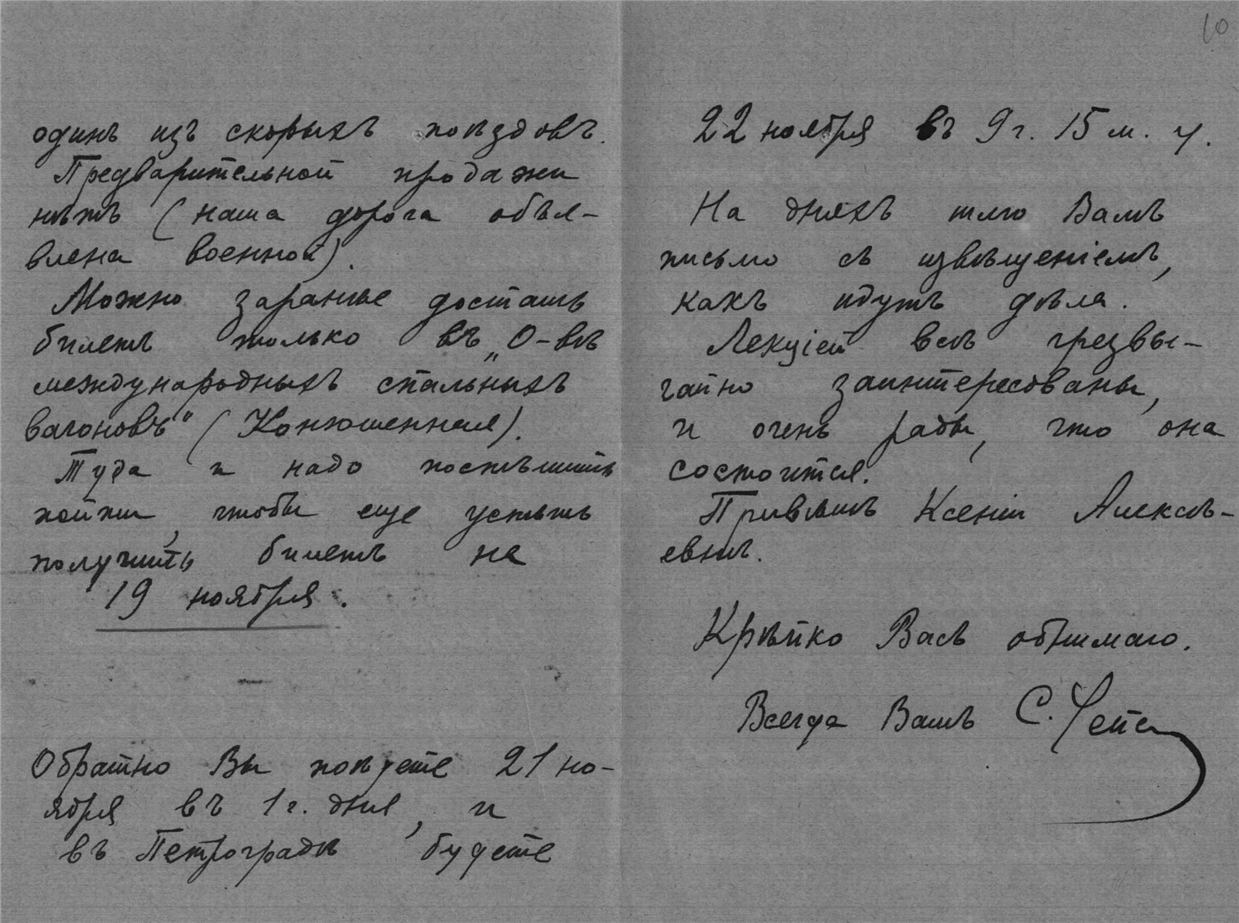 одинъ изъ скорыхъ поѣздовъ.
Предварительной продажи
нѣтъ (наша дорога объя-
влена военной).
Можно заранѣе достать
билетъ только въ „О-вѣ
международныхъ спальныхъ
вагоновъ" (Конюшенная).
Туда и надо поспѣшить
пойти, чтобы еще успѣть
получить билетъ на
19 ноября.
Обратно Вы поѣдете 21 но-
ября въ 1 ч. дня, и
въ Петроградѣ будете
10
22 ноября въ 9 ч. 15 м. у.
На дняхъ шлю Вамъ
письмо съ извѣщеніемъ,
какъ идутъ дѣла.
Лекціей всѣ чрезвы-
чайно заинтересованы,
и очень рады, что она
состоится.
Привѣтъ Ксеніи Алексѣ-
евнѣ.
Крѣпко Васъ обнимаю.
Всегда Вашъ С.